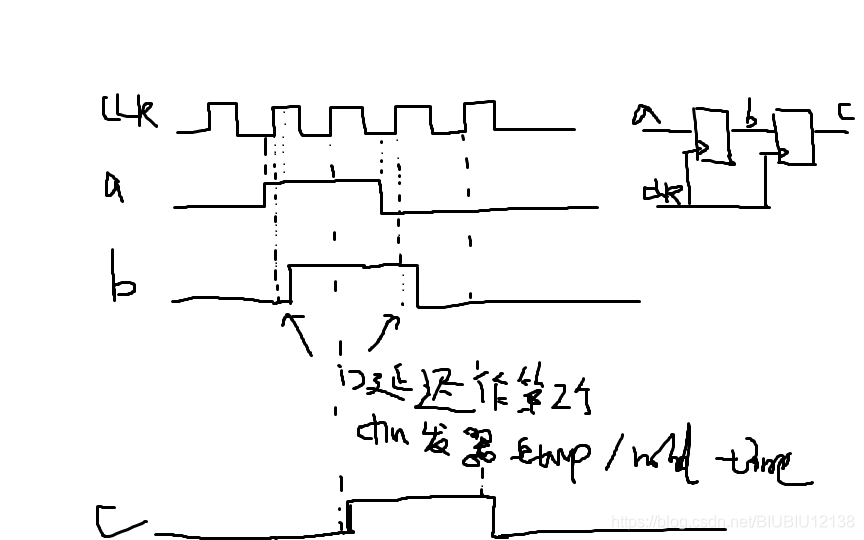 clk
a
b
a b c
clk
门延迟作第2个
触发器 setup / hold time
c
https://blog.csdn.net/BIUBIU12138